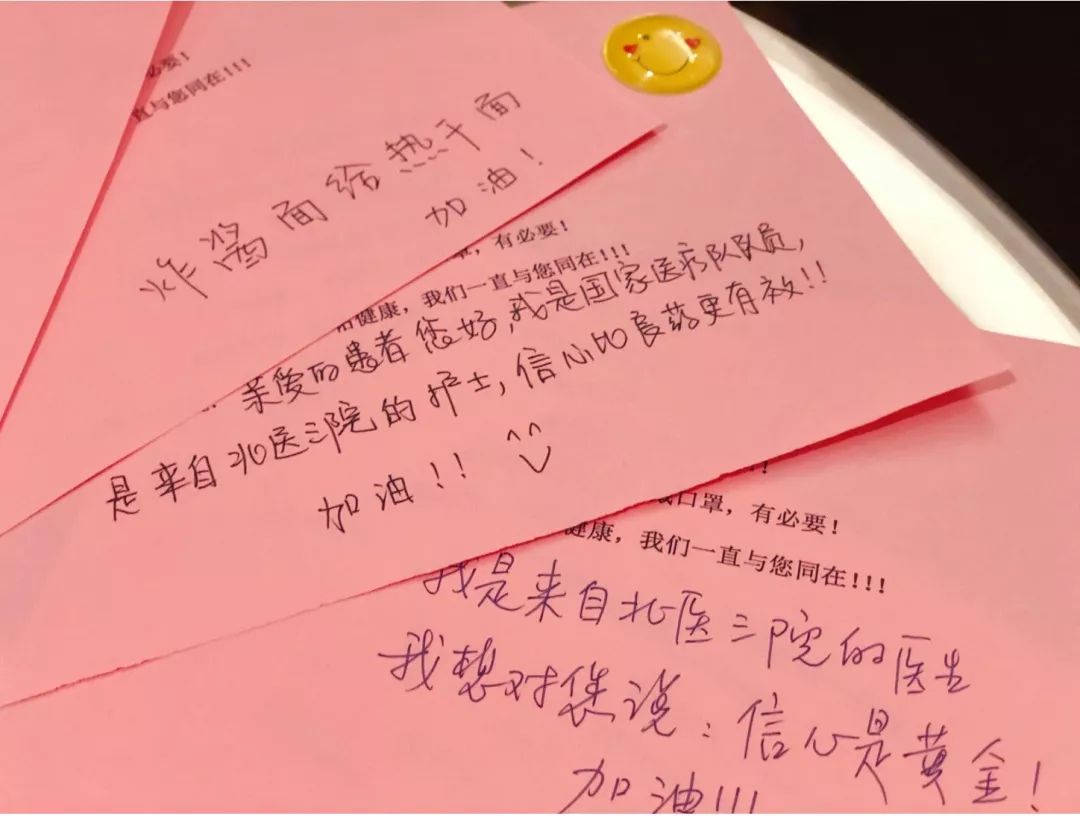 必要!
直与您同在!!!
炸酱面给热干面
加油!
,有必要!
健康,我们一直与您同在!!!
亲爱的患者您好,我是国家医疗队队员,
是来自北医三院的护士,信心比良药更有效!!
加油!!
口罩,有必要!
健康,我们一直与您同在!!!
我是来自北医三院的医生
我想对您说:信心是黄金!
加油!!!